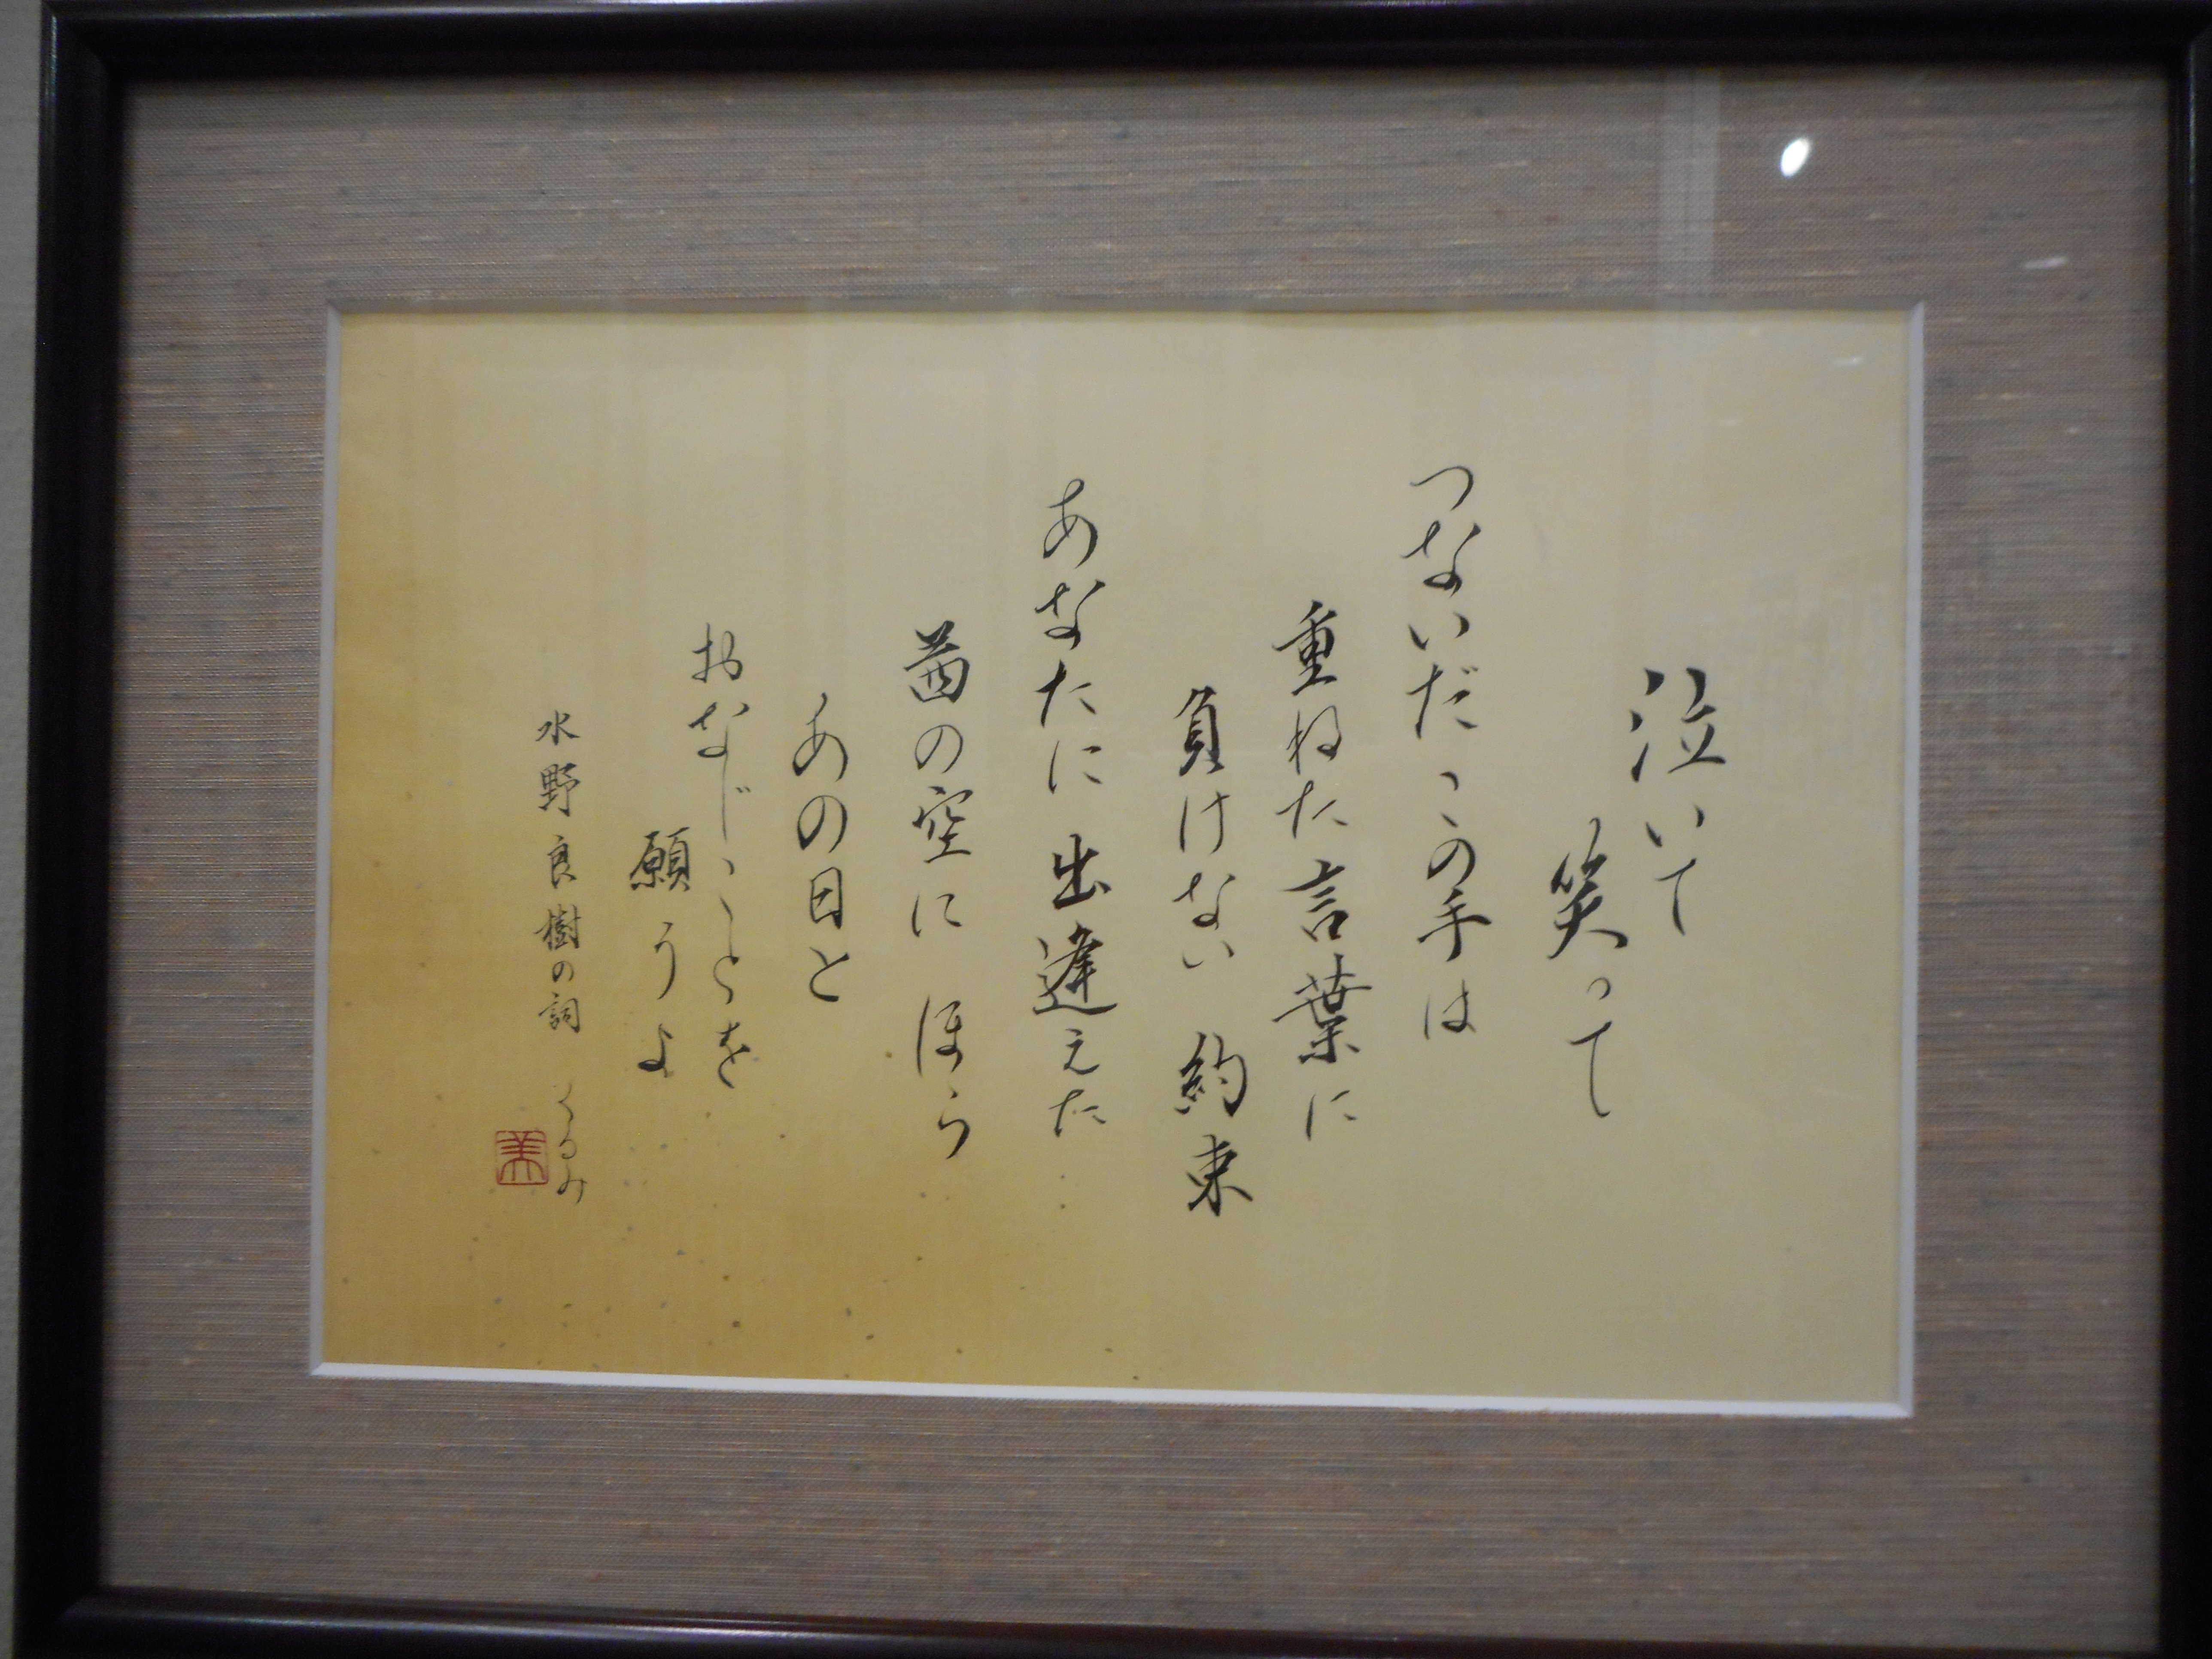 泣いて
笑って
つないだこの手は
重ねた言葉に
負けない 約束
あなたに 出逢えた
茜の空に ほら
あの日と
おなじことを
願うよ
水野良樹の詞 くるみ
美